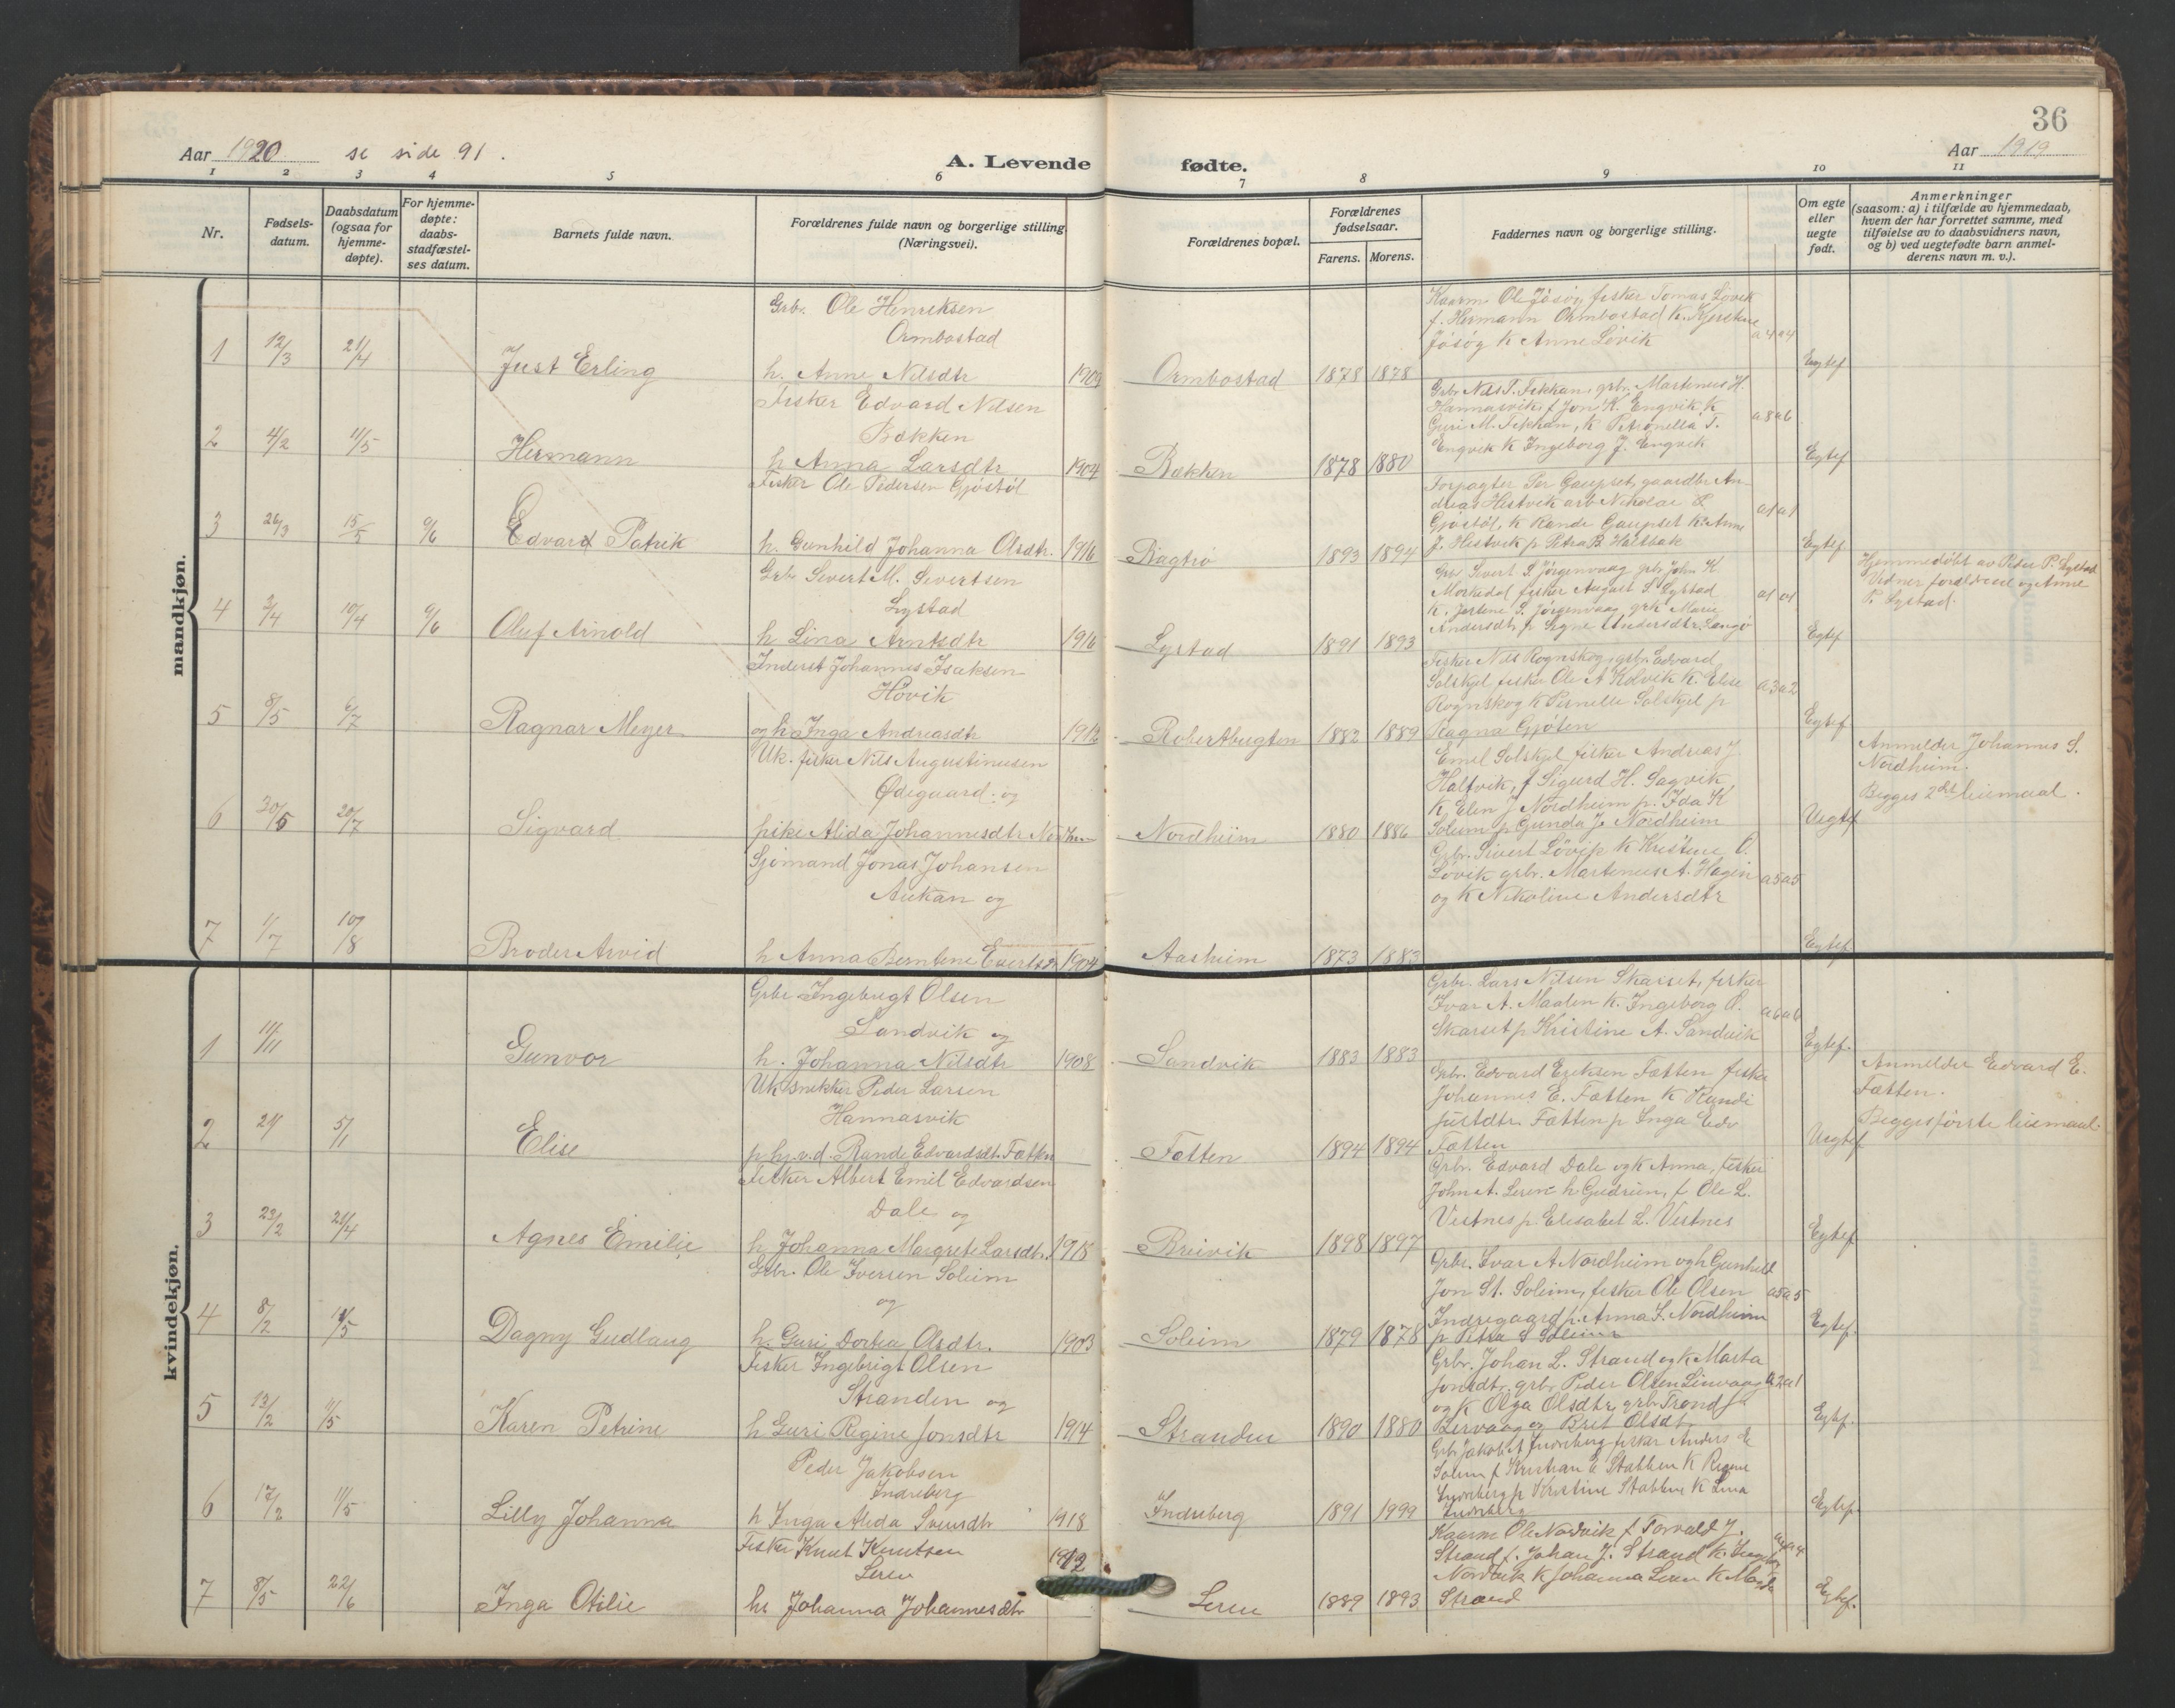 36
Aar 1920 se side 91.
A. Levende
fødte.
Aar 1919
1 2 3 4 5 6
7 8 9 10 11
Nr.
Fødsels-
datum.
Daabsdatum
(ogsaa for
hjemme-
døpte).
For hjemme-
døpte:
daabs-
stadfæstel-
ses datum.
Barnets fulde navn.
Forældrenes fulde navn og borgerlige stilling
(Næringsvei).
Forældrenes bopæl.
Forældrenes
fødselsaar.
Farens. Morens.
Faddernes navn og borgerlige stilling.
Om egte
eller
uegte
født.
Anmerkninger
(saasom: a) i tilfælde av hjemmedaab,
hvem der har forrettet samme, med
tilføielse av to daabsvidners navn,
og b) ved uegtefødte barn anmel-
derens navn m. v.).
mandkjøn.
Grbr. Ole Henriksen
Ormbostad
1 12/3 21/4 Just Erling h. Anne Nilsdtr 1909 Ormbostad 1878 1878 Egtef
Kaarm Ole Jøsøy, fisker Tomas Løvik
f. Hermann Ormbostad k. Kjerstine
Jøsøy k Anne Løvik a4 a4
Fisker Edvard Nilsen
Bækken
2 4/2 11/5 Hermann h Anna Larsdtr 1904 Bækken 1878 1880 Egtef
Grbr Nils T. Fikkan, grbr. Martinus H.
Hannasvik, f Jon K. Engvik, k
Guri M. Fikkan, k Petronella T. a8 a6
Engvik k Ingeborg J. Engvik
Fisker Ole Pedersen Gjøstøl
3 26/3 15/5 9/6 Edvard Patrik h. Gunhild Johanna Olsdtr. 1916 Ragtrø 1893 1894 Egtef
Forpagter Per Gaupset, gaardbr An-
dreas Hestvik arb Nikolai P.
Gjøstøl, k Rande Gaupset k. Anne a1 a1
J. Hestvik p Petra B. Haltbak
Grbr Severt M. Severtsen
Lystad
4 3/4 10/4 9/6 Oluf Arnold h Lina Arntsdtr 1916 Lystad 1891 1893 Egtef
Grbr Sivert S. Jørgenvaag grbr John K
Morkedal fisker August S. Lystad a1 a1
k. Jertene S. Jørgenvaag, grk Marie
Andersdtr p Signe Andersdtr. Langø
Hjemmedøbt av Peder P. Lystad
Vidner foreldrene og Anne
P. Lystad.
Inderst Johannes Isaksen
Hovik
5 8/5 6/7 Ragnar Meyer og h Inga Andreasdtr 1912 Robertbugten 1882 1889 Egtef
Fisker Nils Rognskog, grbr. Edvard
Solskjel fisker Ole A Holvik k. Elise a3 a2
Rognskog k Pernelle Solskjel p
Ragna Gjøten
Uk. fisker Nils Augustinusen
Ødegaard og
6 30/5 20/7 Sigvard pike Alida Johannesdtr Nordheim Nordheim 1880 1886 Uegtef
Emil Solskjel fisker Andreas J
Haltvik, f Sigurd H. Sagvik
k Elen J Nordheim p. Ida K
Solum p Gunda J. Nordheim
Anmelder Johannes S.
Nordheim.
Begges 2det leiemaal.
Sjømand Jonas Johansen
Aukan og
7 1/7 10/8 Broder Arvid h Anna Berntine Evertsdtr 1904 Aasheim 1873 1883 Egtef
Grbr. Sivert Løvik k Kristine O.
Løvik grbr. Martinus A. Hagen a5 a5
og k Nikoline Andersdtr
kvindekjøn.
Grbr Ingebrigt Olsen
Sandvik og
1 11/11 Gunvor h. Johanna Nilsdtr 1908 Sandvik 1883 1883 Egtef.
Grbr. Lars Nilsen Skarset, fisker
Ivar A. Maalen k. Ingeborg O. a6 a6
Skarset p Kristine A. Sandvik
Uk snekker Peder Larsen
Hannasvik
2 5/1 Elise p hj.v.d. Rande Edvardsdt. Fætten Fætten 1894 1894 Uegtef
Grbr. Edvard Eriksen Fætten fisker
Johannes E. Fætten k Randi
Justdtr. Fætten p Inga Edv
Fætten
Anmelder Edvard E.
Fætten.
Begges første leiemaal.
Fisker Albert Emil Edvardsen
Dale og
3 23/2 21/4 Agnes Emilie h Johanna Margrete Larsdtr. 1918 Breivik 1898 1897 Egtef
Grbr. Edvard Dale og k Anna, fisker
John A. Leren h Gudrun, f Ole L.
Vestnes p. Elisabet L. Vestnes
Grbr. Ole Iversen Soleim
og
4 8/2 Dagny Gudlaug h. Guri Dortea Olsdtr. 1903 Soleim 1879 1878 Egtef.
Grbr. Ivar A Nordheim og h Gunhild
Jon St. Soleim, fisker Ole Olsen a5 a5
Indregaard p. Anna I. Nordheim
p Petra S Soleim
Fisker Ingebrigt Olsen
Stranden og
5 12/2 11/5 Karen Petrine h Guri Regine Jonsdtr 1914 Stranden 1890 1880 Egtef.
Grbr. Johan L. Strand og k Marta
Jonsdtr, grbr Peder Olsen Linvaag a2 a1
og k Olga Olsdtr, grbr Trond J.
Bervaag og Brit Olsdt
Peder Jakobsen
Indreberg
6 17/2 11/5 Lilly Johanna h Inga Alida Svensdtr 1918 Indreberg 1891 1999 Egtef.
Grbr Jakob A Indreberg fisker Anders E
Solem f Kristian E Stabben k Regine
Indreberg p Kristine Stabben k Lina
Indreberg
Fisker Knut Knutsen
Leren
7 8/5 22/6 Inga Otilie h. Johanna Johannesdtr 1912 Leren 1889 1893 Egtef.
Kaarm Ole Nordvik f Torvald J.
Strand f. Johan J. Strand k. a4 a4
Nordvik k Johanna Leren k
Strand